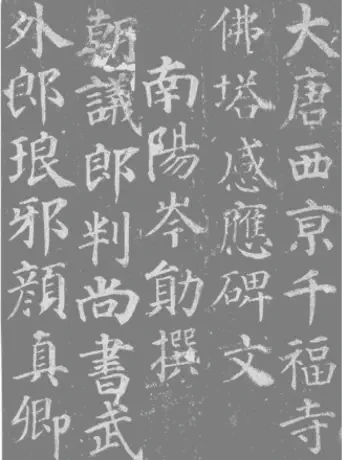 大唐西京千福寺
佛塔感應碑文
南陽岑勛撰
朝議郎判尚書武
外郎琅邪顏真卿